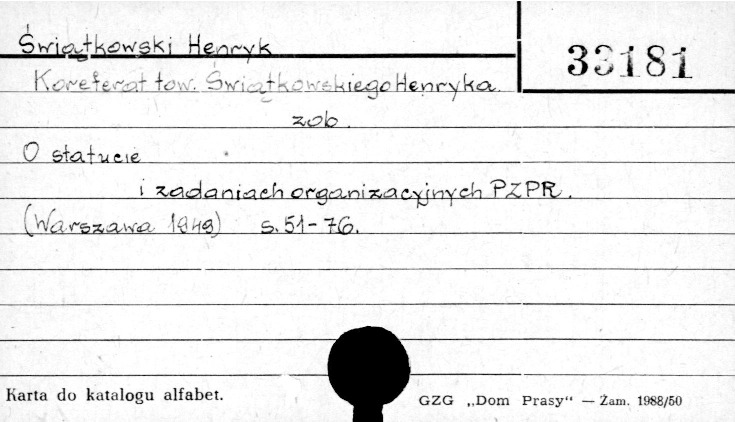 Świątkowski Henryk
33181
Koreferat tow. Świątkowskiego Henryka.
zob.
O statucie
i zadaniach organizacyjnych PZPR.
(Warszawa 1949) s. 51-76.
Karta do katalogu alfabet.
GZG „Dom Prasy" — Żam. 1988/50